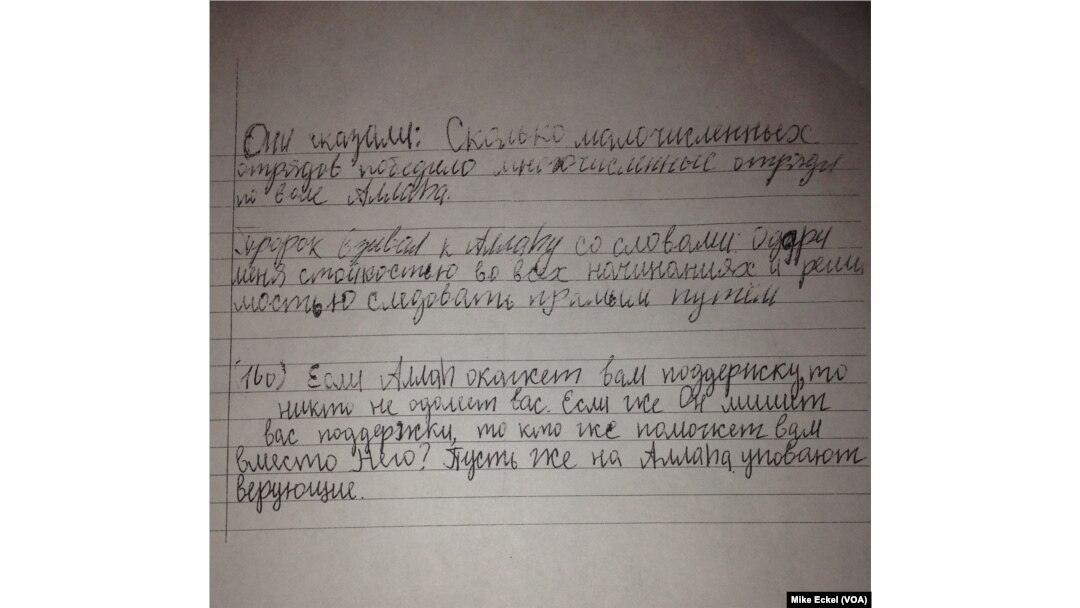 Они сказали: Сколько малочисленных
отрядов победило многочисленные отряды
по воле Аллаhа.
Пророк взывал к Аллаhу со словами: Одари
меня стойкостью во всех начинаниях и реши
мостью следовать прямым путём
160) Если Аллаh окажет вам поддержку, то
никто не одолеет вас. Если же Он лишит
вас поддержки, то кто же поможет вам
вместо Него? Пусть же на Аллаhа уповают
верующие.
Mike Eckel (VOA)